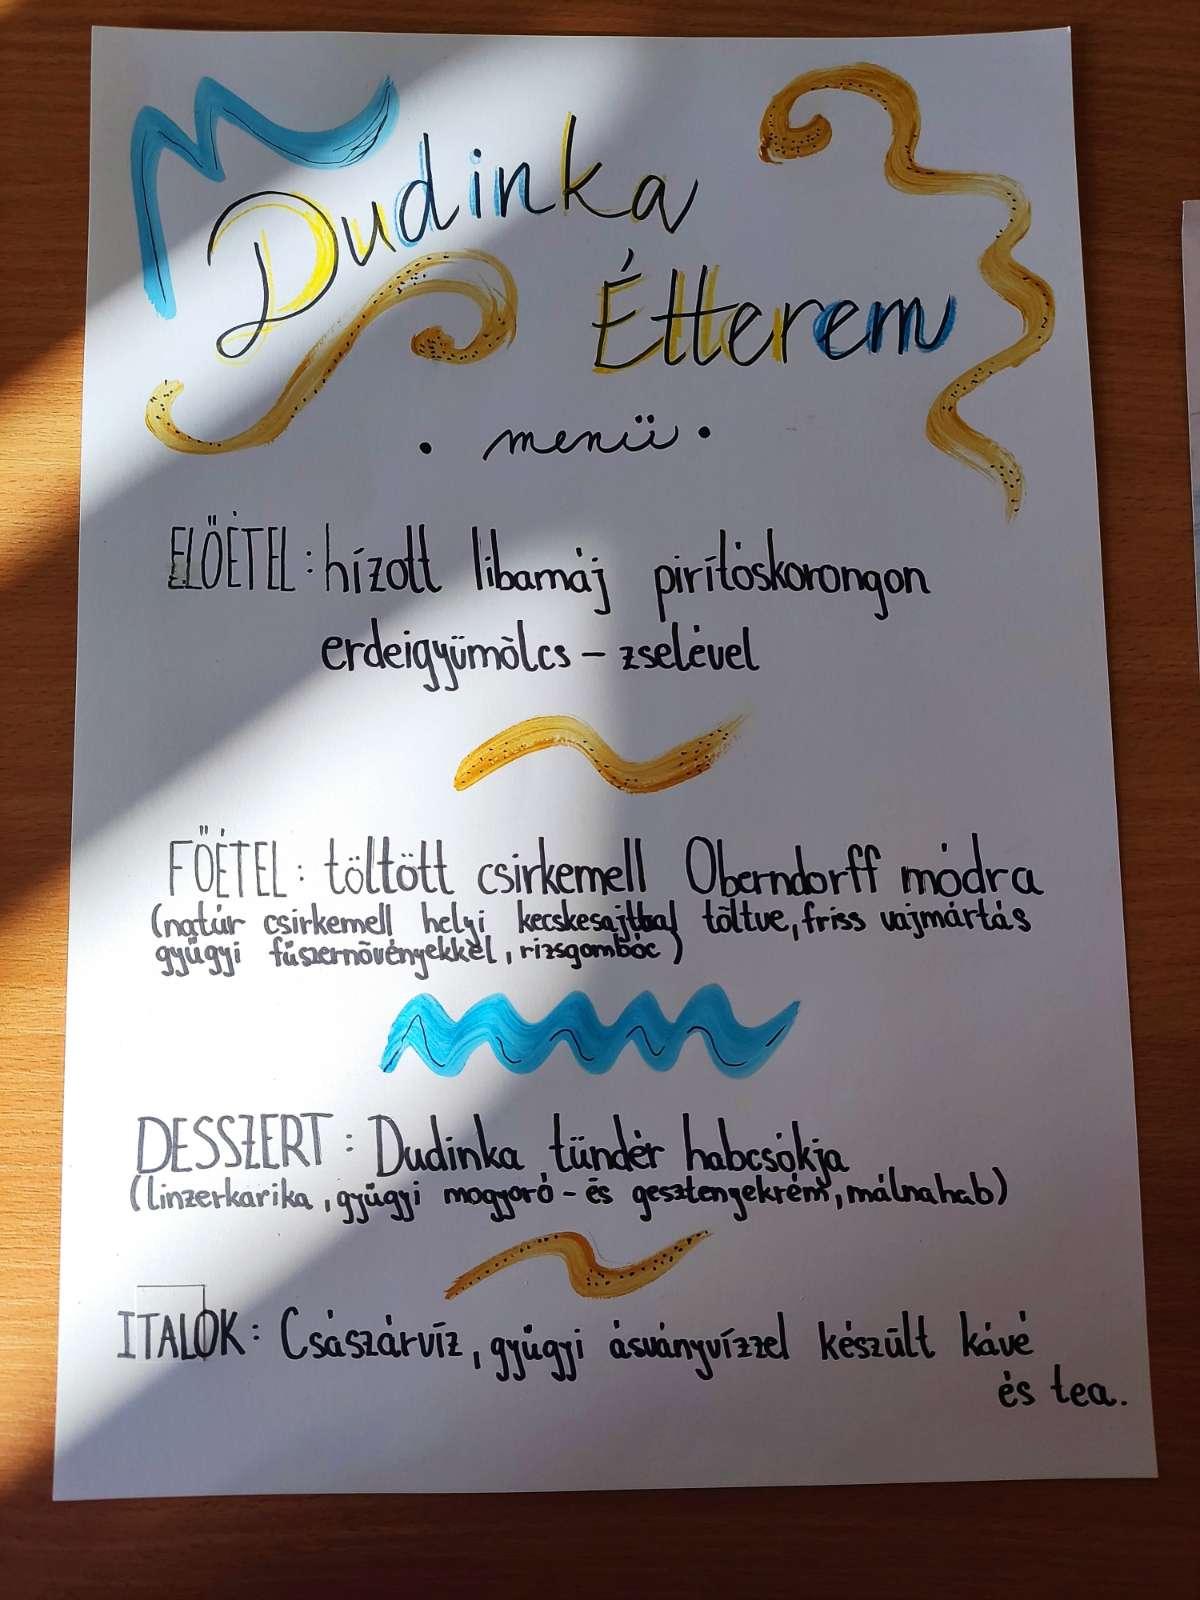 Dudinka
Étterem
• menü •
ELŐÉTEL: hízott libamáj pirítóskorongon
erdeigyümölcs - zselével
FŐÉTEL: töltött csirkemell Oberndorff módra
(natúr csirkemell helyi kecskesajttal töltve, friss vajmártás
gyűgyi fűszernövényekkel, rizsgombóc)
DESSZERT: Dudinka tündér habcsókja
(linzerkarika, gyűgyi mogyoró - és gesztenyekrém, málnahab)
ITALOK: Császárvíz, gyűgyi ásványvízzel készült kávé
és tea.